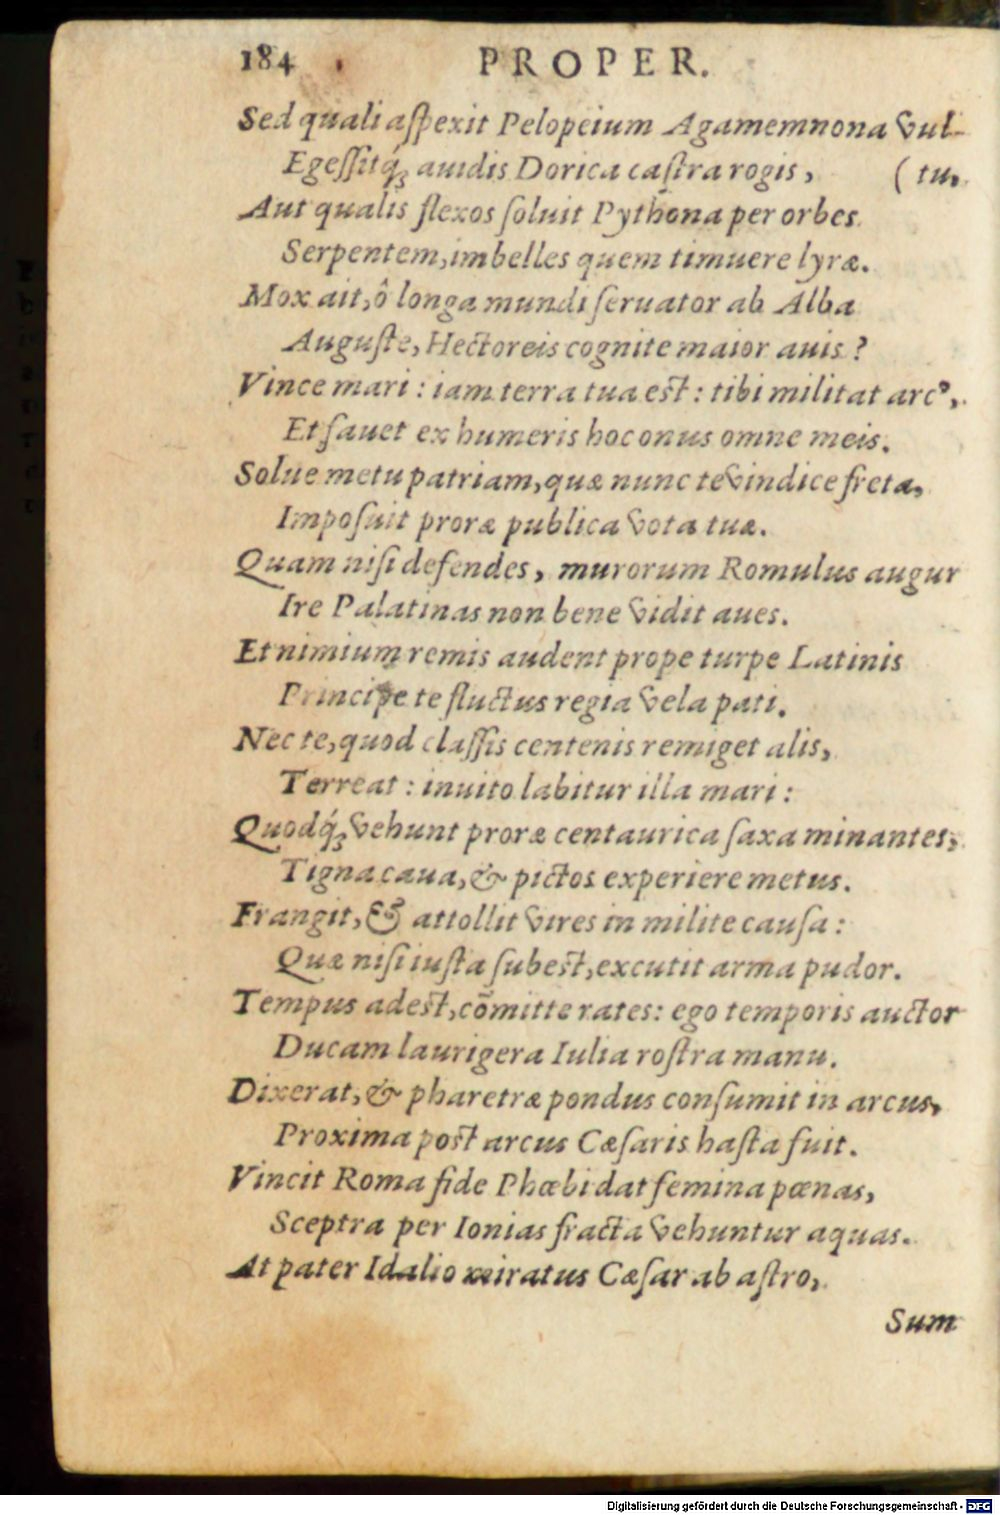 184 PROPER.
Sed quali aſpexit Pelopeium Agamemnona vul-
Egeſſitq́; auidis Dorica caſtra rogis, (tu,
Aut qualis flexos ſoluit Pythona per orbes
Serpentem, imbelles quem timuere lyræ.
Mox ait, ô longa mundi ſeruator ab Alba
Auguſte, Hectoreis cognite maior auis?
Vince mari: iam terra tua est: tibi militat arcꝰ,
Et fauet ex humeris hoc onus omne meis.
Solue metu patriam, quæ nunc te vindice freta,
Impoſuit proræ publica vota tuæ.
Quam niſi defendes, murorum Romulus augur
Ire Palatinas non bene vidit aues.
Et nimium remis audent prope turpe Latinis
Principe te fluctus regia vela pati.
Nec te, quod claſſis centenis remiget alis,
Terreat: inuito labitur illa mari:
Quodq́; vehunt proræ centaurica ſaxa minantes,
Tigna caua, & pictos experiere metus.
Frangit, & attollit vires in milite cauſa:
Quæ niſi iuſta ſubest, excutit arma pudor.
Tempus adest, cōmitte rates: ego temporis auctor
Ducam laurigera Iulia roſtra manu.
Dixerat, & pharetræ pondus conſumit in arcus,
Proxima post arcus Cæſaris haſta fuit.
Vincit Roma fide Phœbi dat femina pœnas,
Sceptra per Ionias fracta vehuntur aquas.
At pater Idalio miratus Cæſar ab aſtro,
Sum
Digitalisierung gefördert durch die Deutsche Forschungsgemeinschaft - DFG